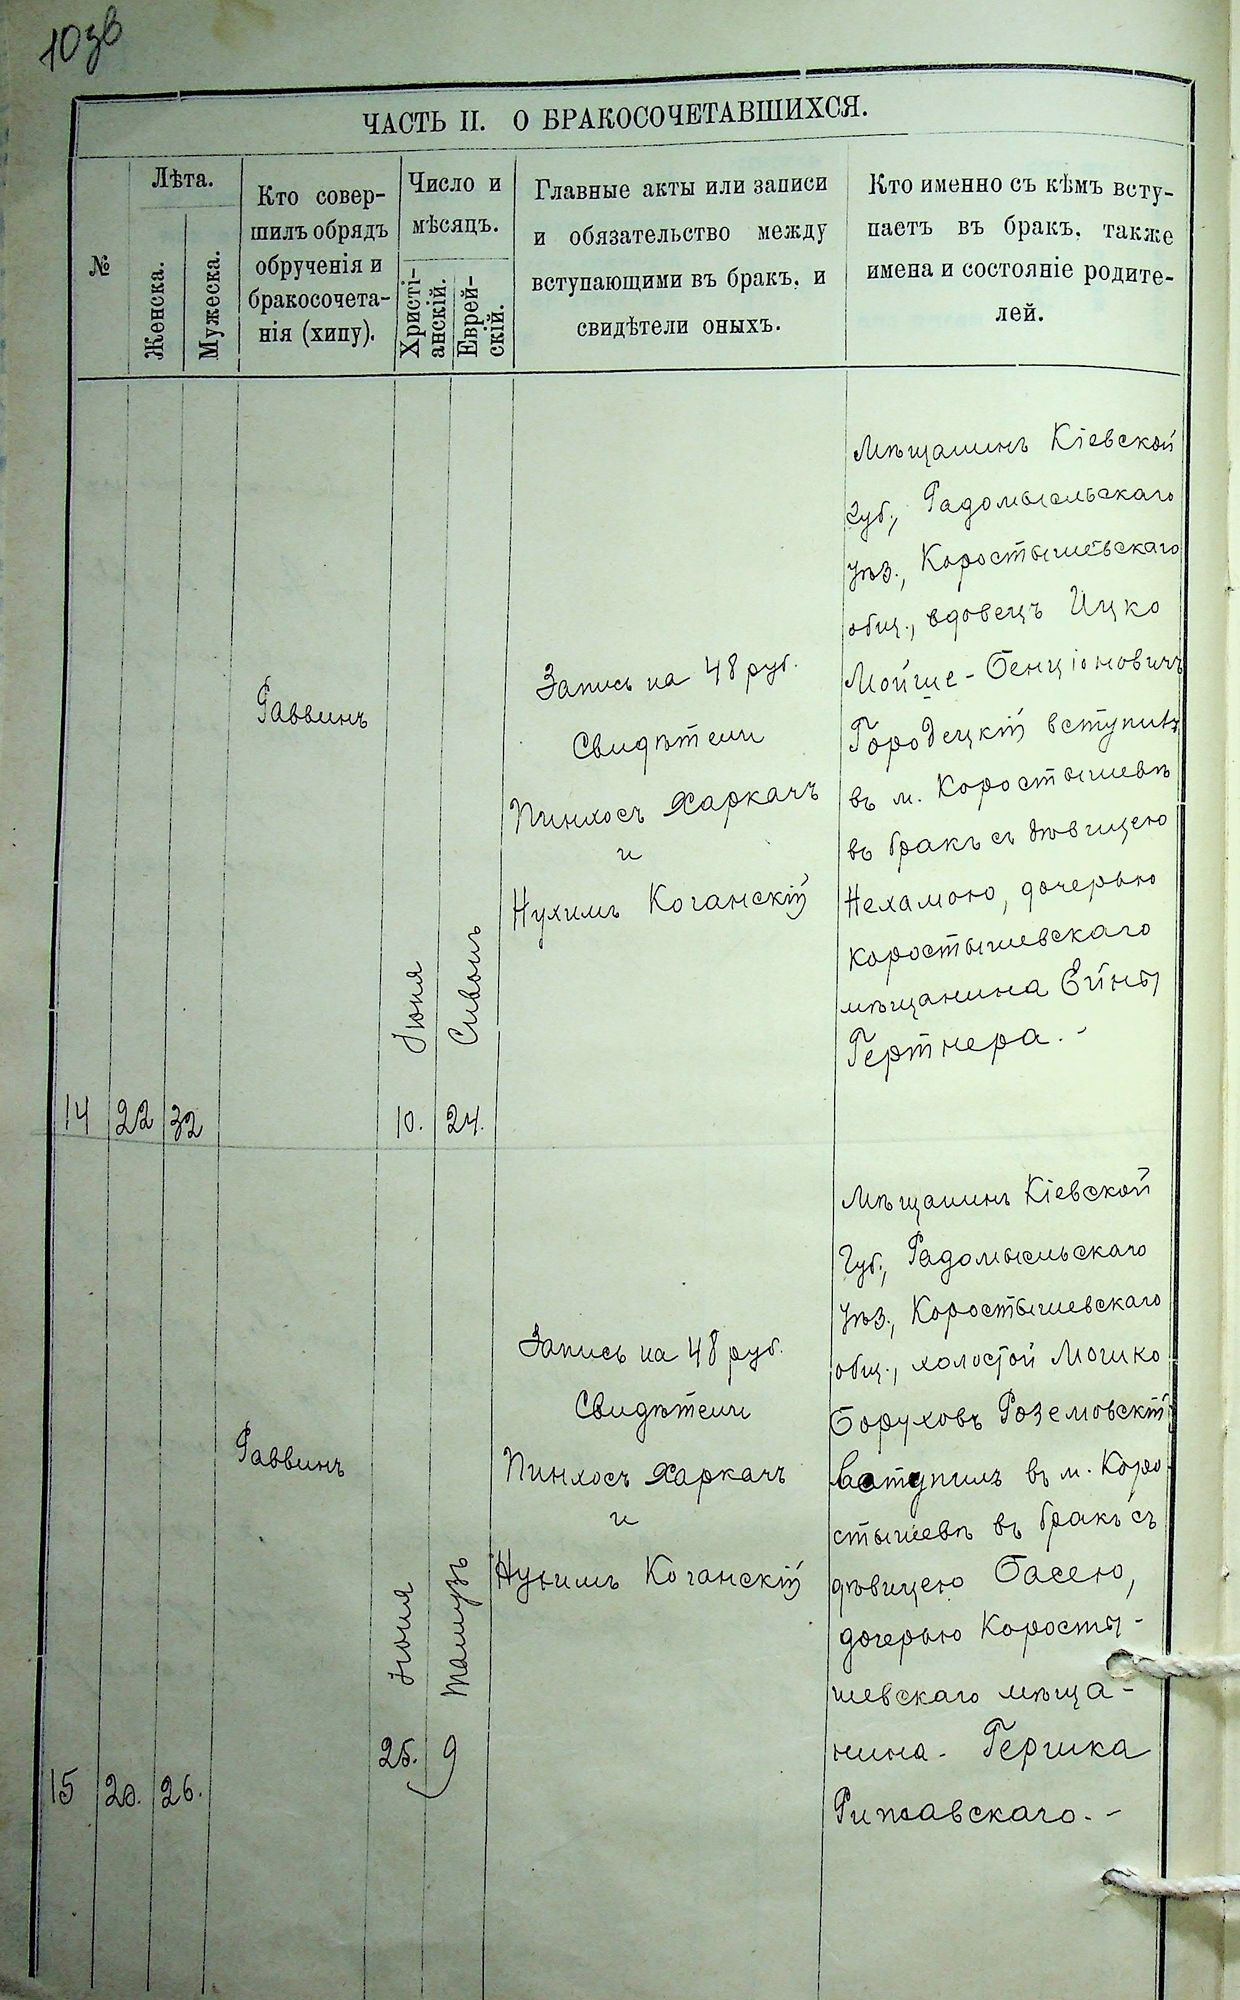 103в
ЧАСТЬ II. О БРАКОСОЧЕТАВШИХСЯ.
№
Лѣта.
Женска.
Мужеска.
Кто совер-
шилъ обрядъ
обрученія и
бракосочета-
нія (хипу).
Число и
мѣсяцъ.
Христі-
анскій.
Еврей-
скій.
Главные акты или записи
и обязательство между
вступающими въ бракъ, и
свидѣтели оныхъ.
Кто именно съ кѣмъ всту-
паетъ въ бракъ, также
имена и состояніе родите-
лей.
14
22
32
Раввинъ
Іюня
10.
Сивонъ
24.
Запись на 48 руб.
Свидѣтели
Пинхосъ Харкачъ
и
Нухимъ Коганскій
Мѣщанинъ Кіевской
губ., Радомысльскаго
уѣз., Коростышевскаго
общ., вдовецъ Ицко
Мойше-Бенціоновичъ
Городецкій вступилъ
въ м. Коростышевѣ
въ бракъ съ дѣвицею
Нехамою, дочерью
коростышевскаго
мѣщанина Ейны
Гертнера.-
15
20.
26.
Раввинъ
Іюня
25.
Тамузъ
9
Запись на 48 руб.
Свидѣтели
Пинхосъ Харкачъ
и
Нухимъ Коганскій
Мѣщанинъ Кіевской
Губ., Радомысльскаго
уѣз., Коростышевскаго
общ., холостой Мошко
Боруховъ Роземовскій
Вступилъ въ м. Коро-
стышевѣ въ бракъ съ
дѣвицею Басею,
дочерью Коросты-
шевскаго мѣща-
нина- Гершка
Рижавскаго.-